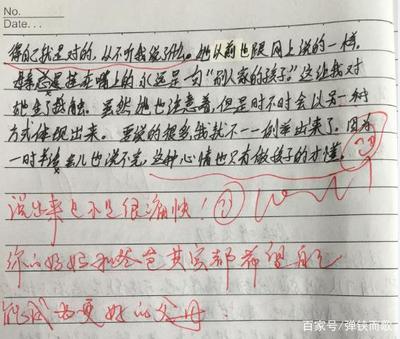 No.
Date...
得自己就是对的，从不听我说了什么。她以前也跟网上说的一样，
每每总是挂在嘴上的永远是一句“别人家的孩子。”这让我对
她生了抵触。虽然她也注意着，但是时不时会以另一种
方式体现出来。要说的挺多，我就不一一列举出来了。因为
一时半会儿也说不完，这种心情也只有做孩子的才懂。
说出来是不是很痛快！
你的妈妈和爸爸其实都希望自己
们成为更好的父母。
百家号/弹铗而歌